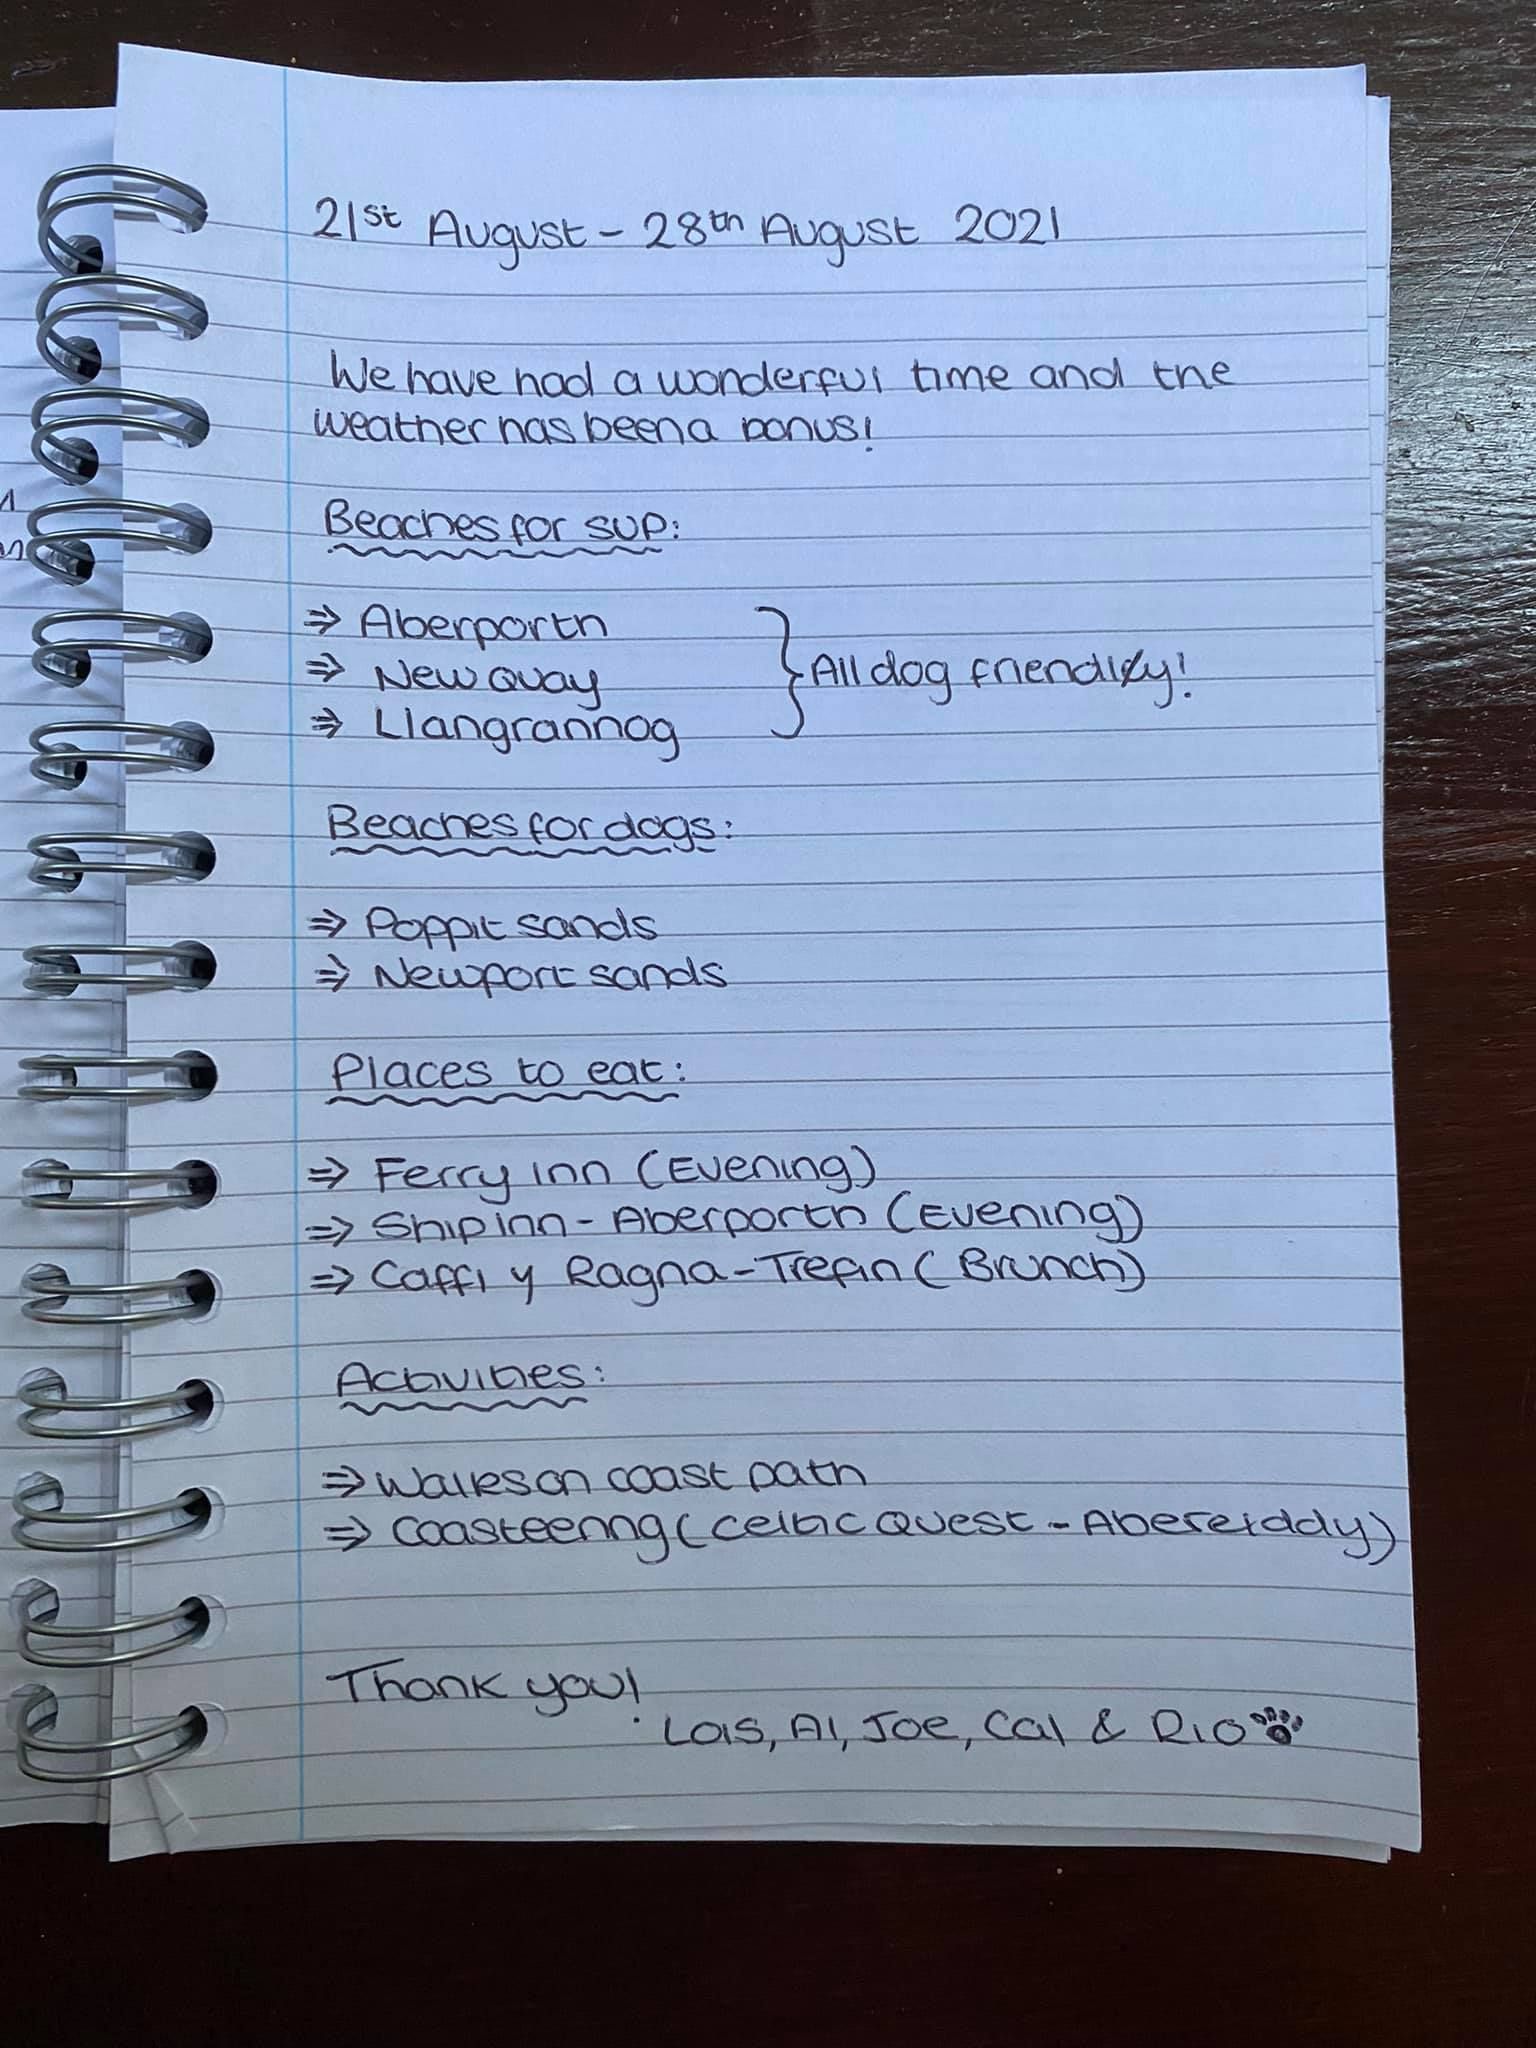 21st August - 28th August 2021
We have had a wonderful time and the
weather has been a bonus!
Beaches for SUP:
⇒ Aberporth
⇒ New Quay
⇒ Llangrannog
} All dog friendly!
Beaches for dogs:
⇒ Poppit sands
⇒ Newport sands
Places to eat:
⇒ Ferry inn (Evening)
⇒ Ship inn - Aberporth (Evening)
⇒ Caffi y Ragna - Trefin (Brunch)
Activities:
⇒ Walks on coast path
⇒ Coasteering (Celtic Quest - Abereiddy)
Thank you!
Lois, Al, Joe, Cal & Rio